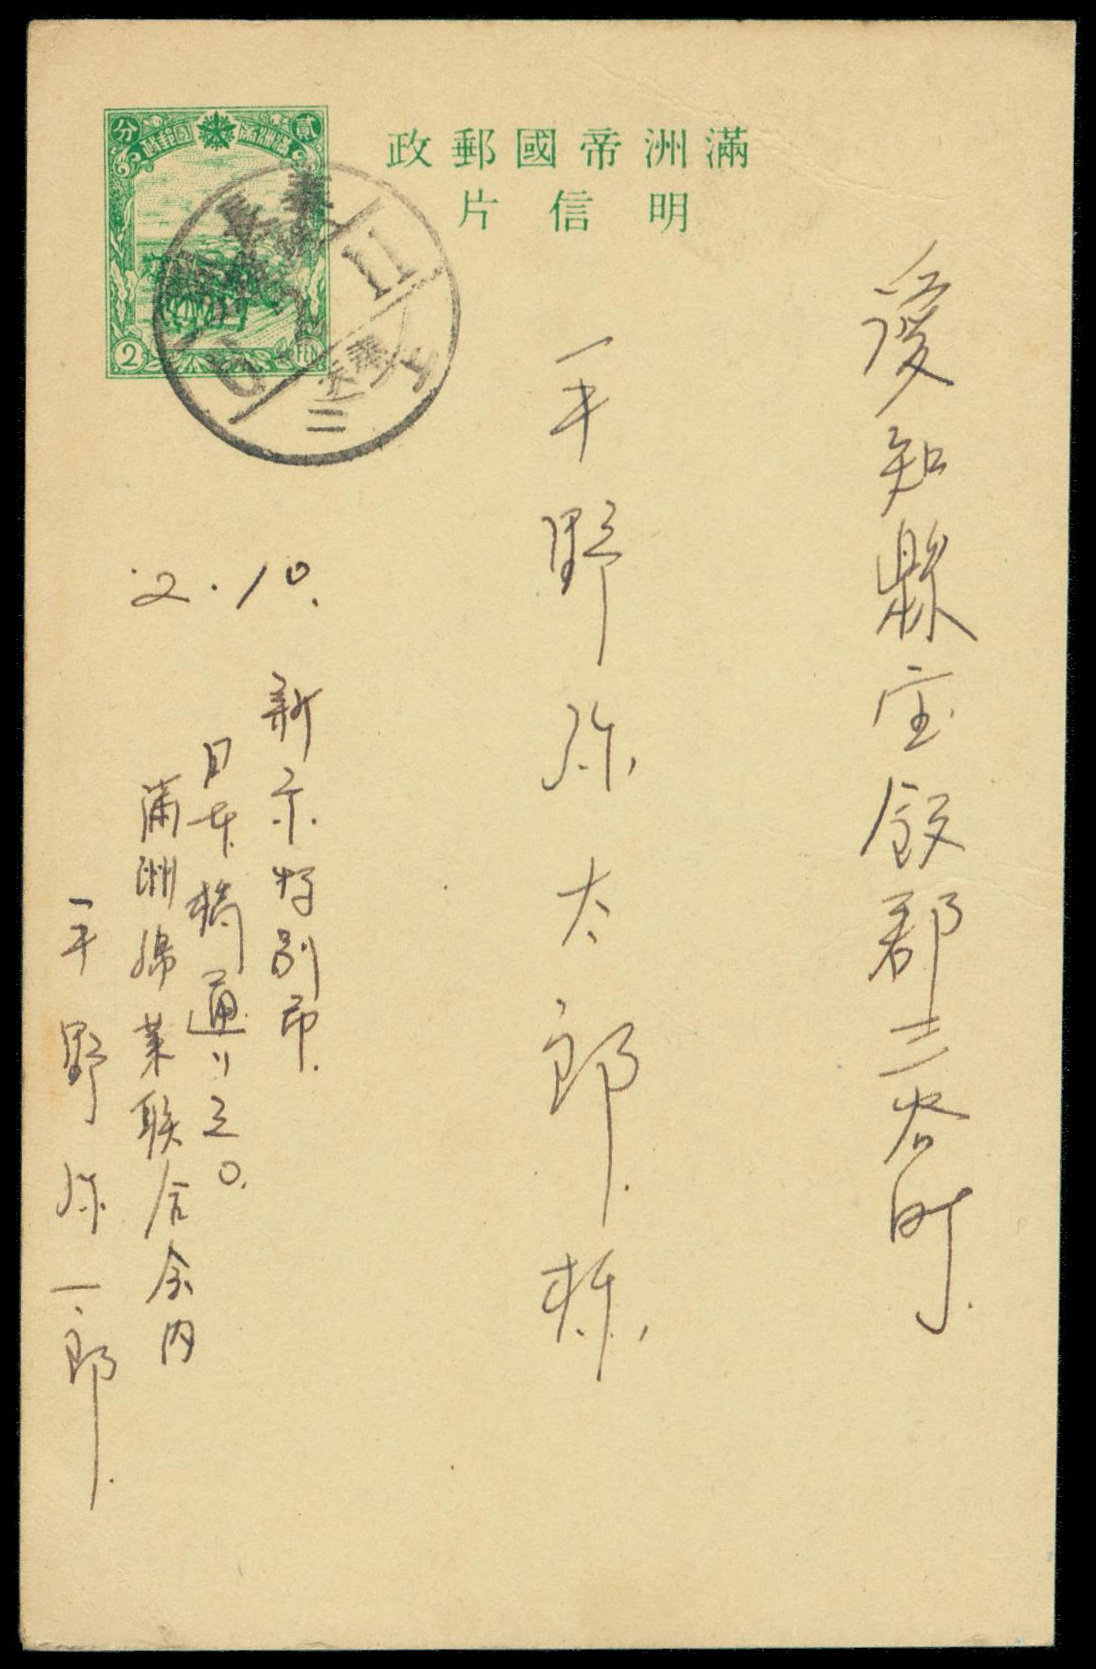 滿洲帝國郵政
明信片
貳分
2 FEN
11
6
奉天
二
愛知縣宝飯郡三谷町
平野弥太郎様
2.10.
新京特別市
日本橋通リ三〇
満洲綿業联合会内
平野弥一郎